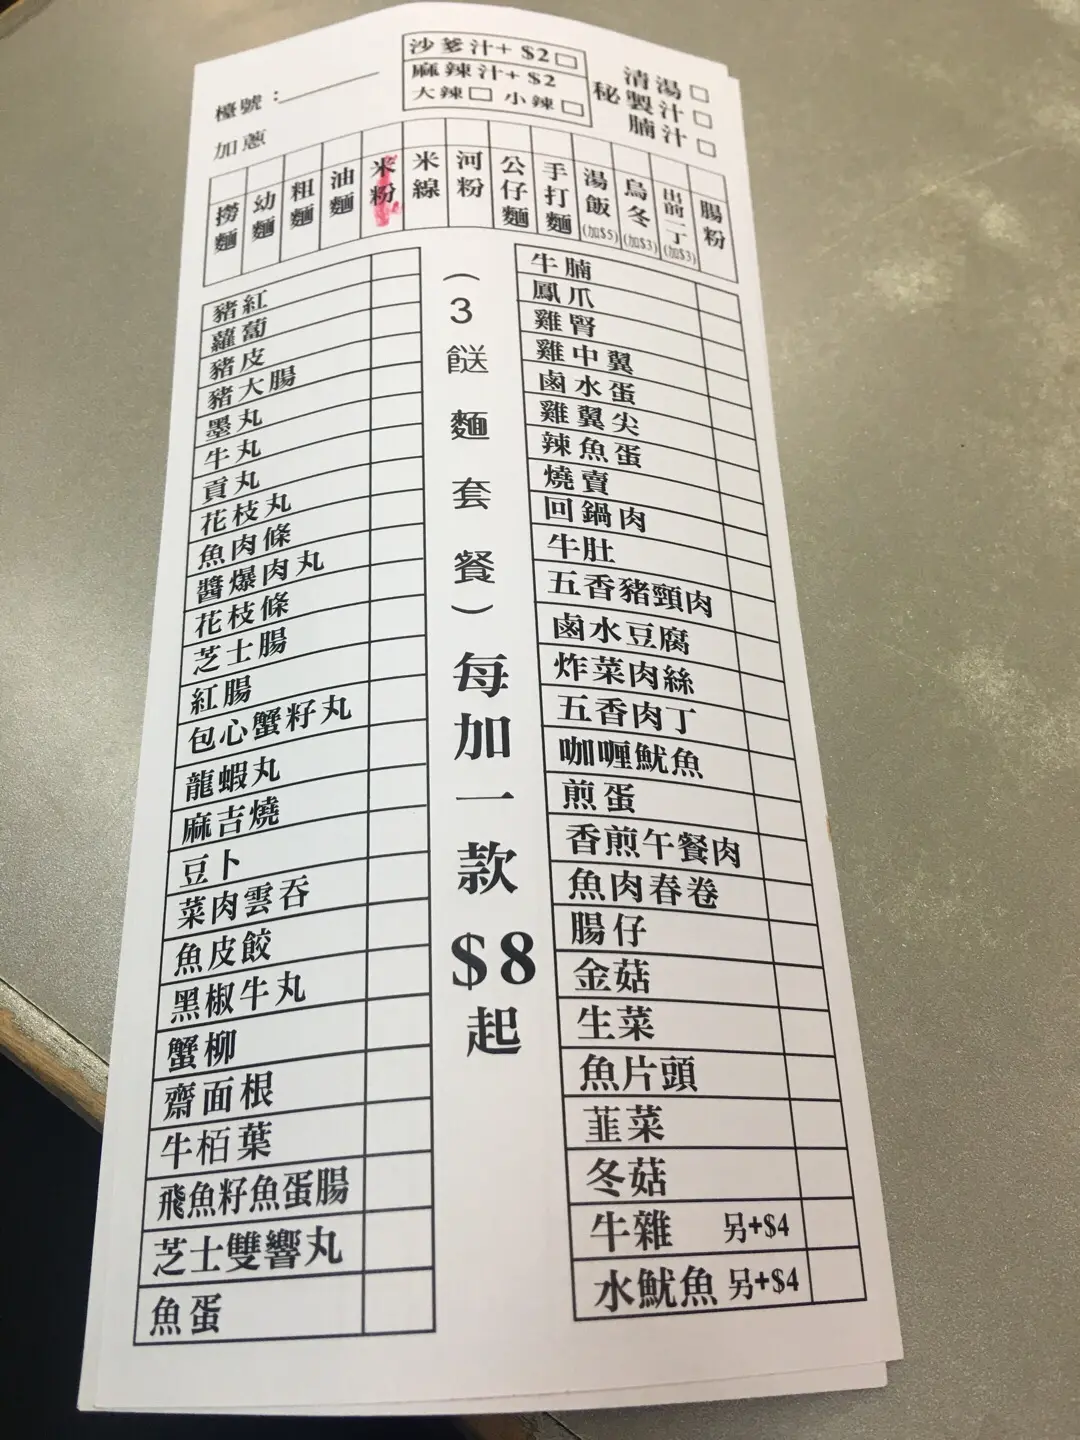 沙爹汁+ $2□
麻辣汁+ $2
大辣□ 小辣□
清湯□
秘製汁□
腩汁□
檯號：
加蔥
撈麵
幼麵
粗麵
油麵
米粉
米線
河粉
公仔麵
手打麵
湯飯(加$5)
烏冬(加$3)
出前一丁(加$3)
腸粉
豬紅
蘿蔔
豬皮
豬大腸
墨丸
牛丸
貢丸
花枝丸
魚肉條
醬爆肉丸
花枝條
芝士腸
紅腸
包心蟹籽丸
龍蝦丸
麻吉燒
豆卜
菜肉雲吞
魚皮餃
黑椒牛丸
蟹柳
齋面根
牛栢葉
飛魚籽魚蛋腸
芝士雙響丸
魚蛋
(3餸麵套餐)每加一款$8起
牛腩
鳳爪
雞腎
雞中翼
鹵水蛋
雞翼尖
辣魚蛋
燒賣
回鍋肉
牛肚
五香豬頸肉
鹵水豆腐
炸菜肉絲
五香肉丁
咖喱魷魚
煎蛋
香煎午餐肉
魚肉春卷
腸仔
金菇
生菜
魚片頭
韮菜
冬菇
牛雜 另+$4
水魷魚 另+$4